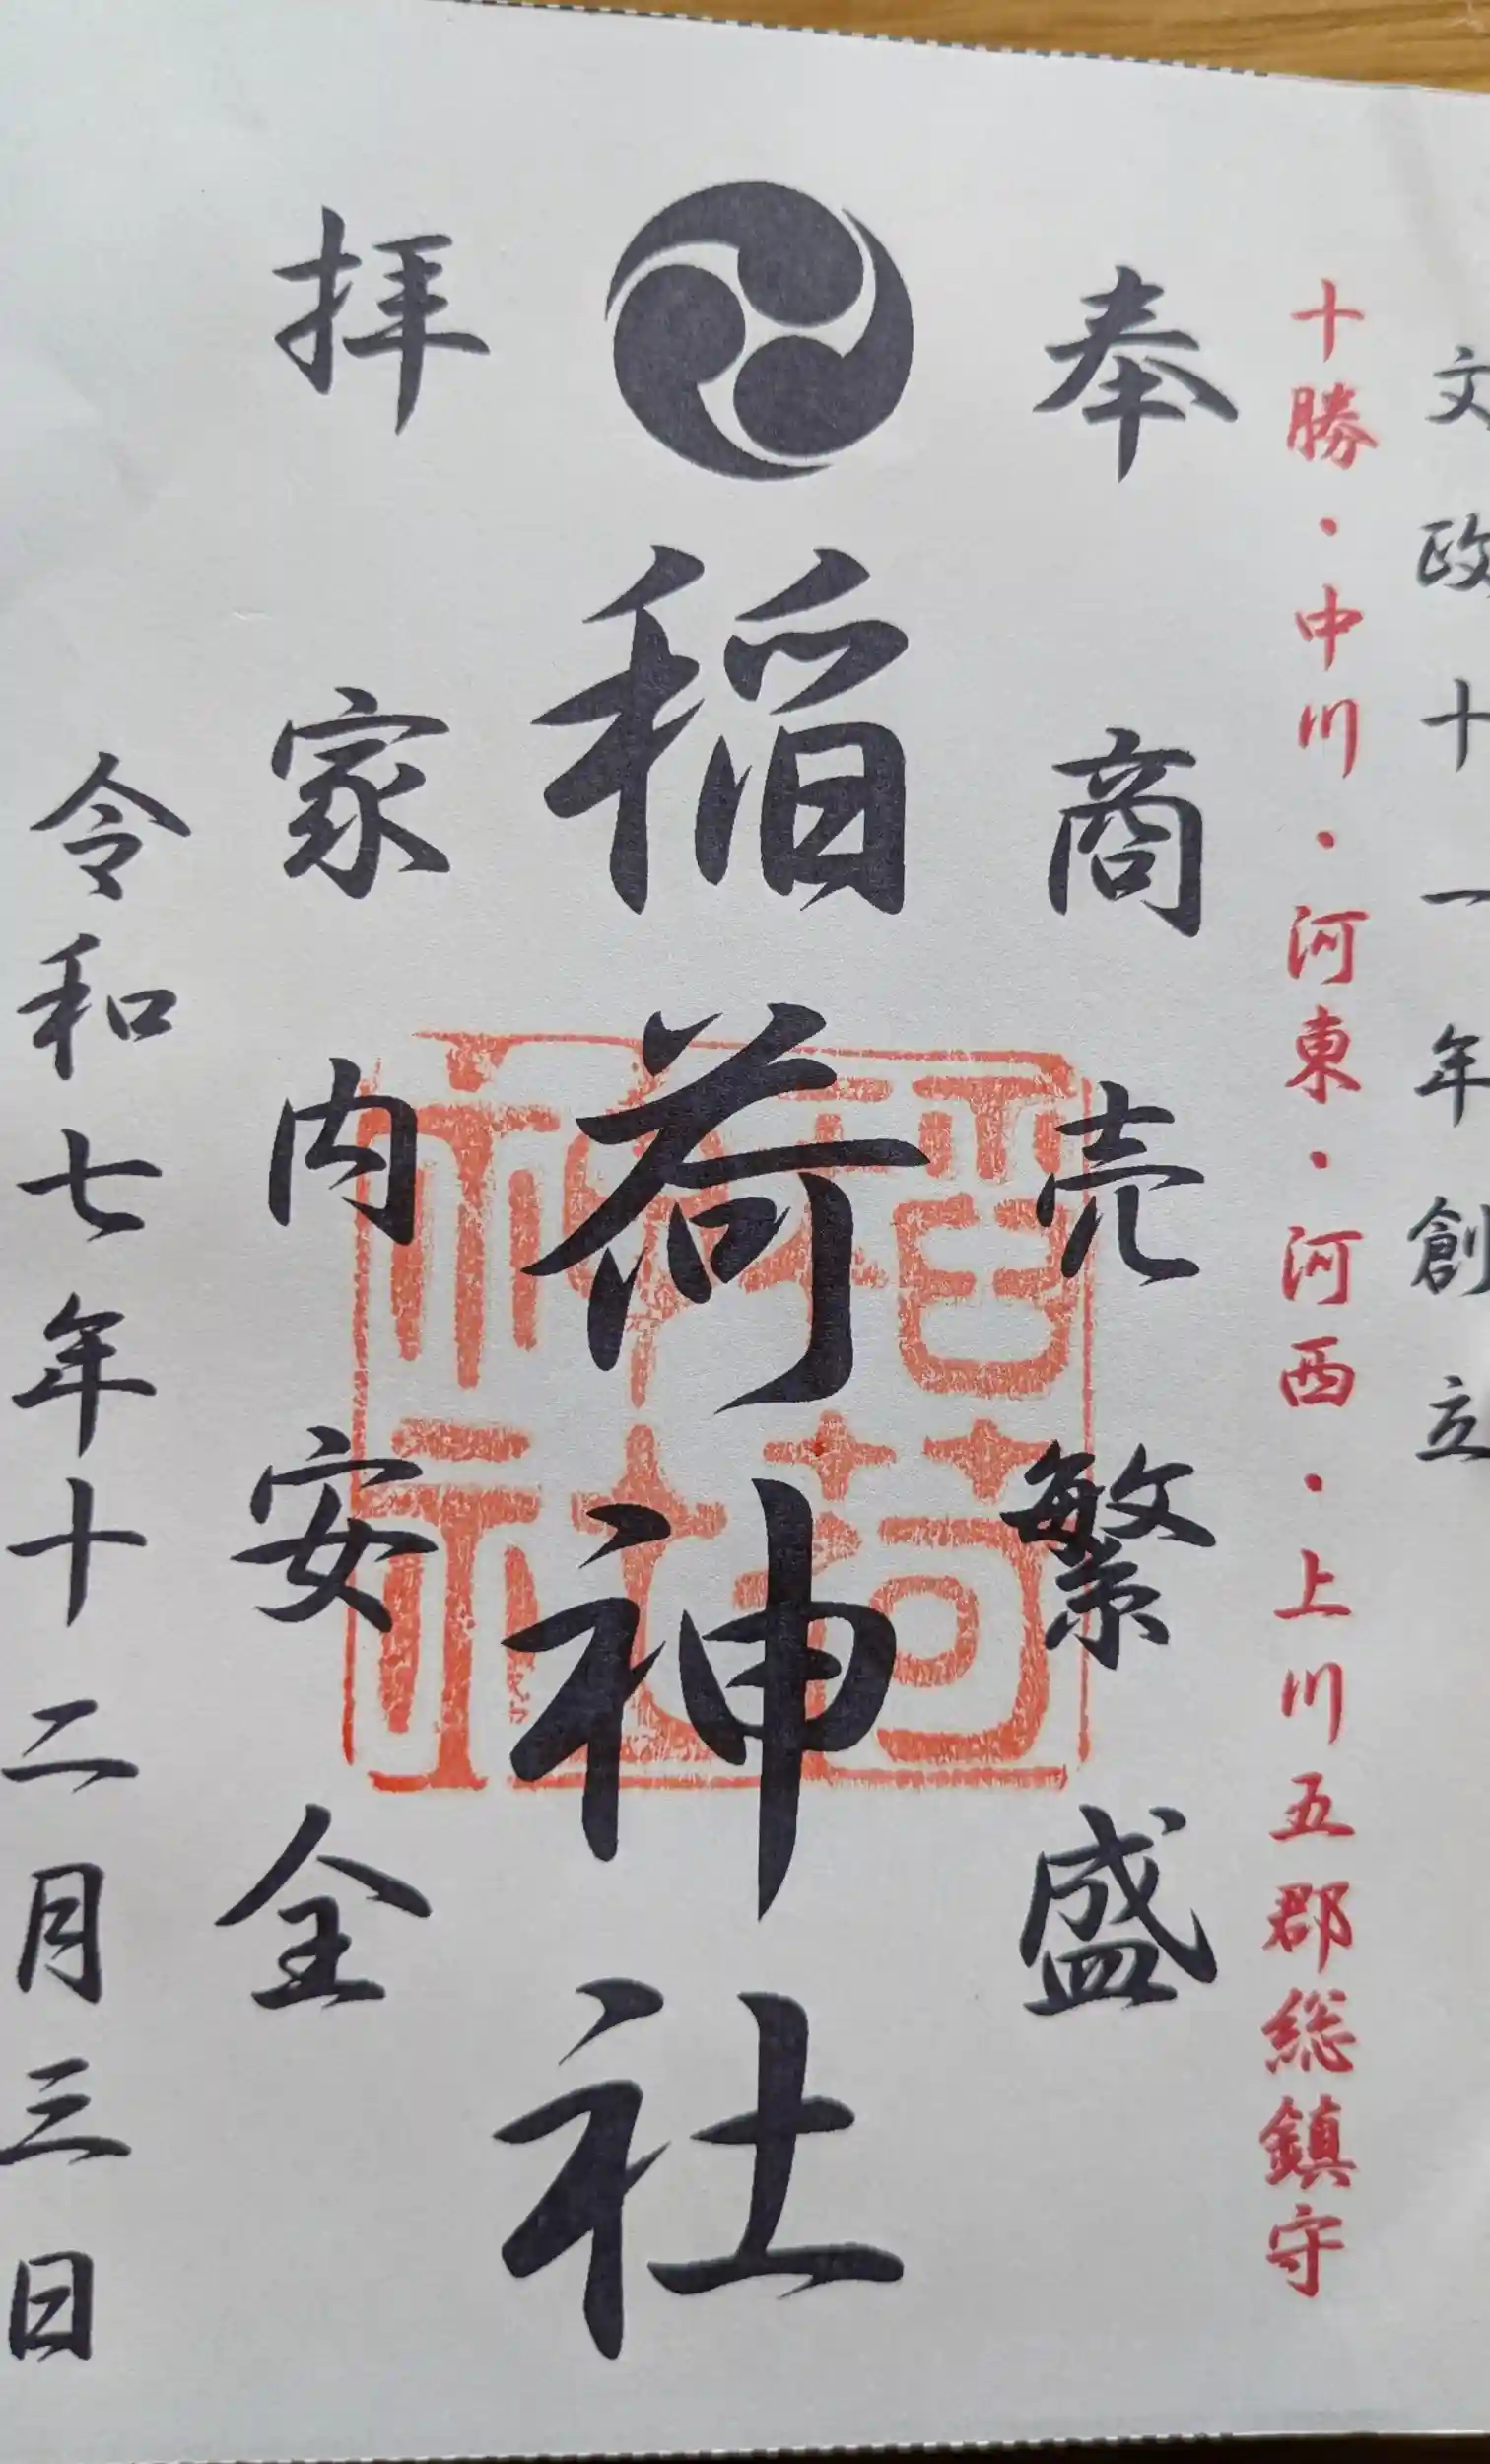 文政十一年創立
十勝・中川・河東・河西・上川五郡総鎮守
奉
商売繁盛
稲荷神社
拝
家内安全
令和七年十二月三日
稲荷
神社